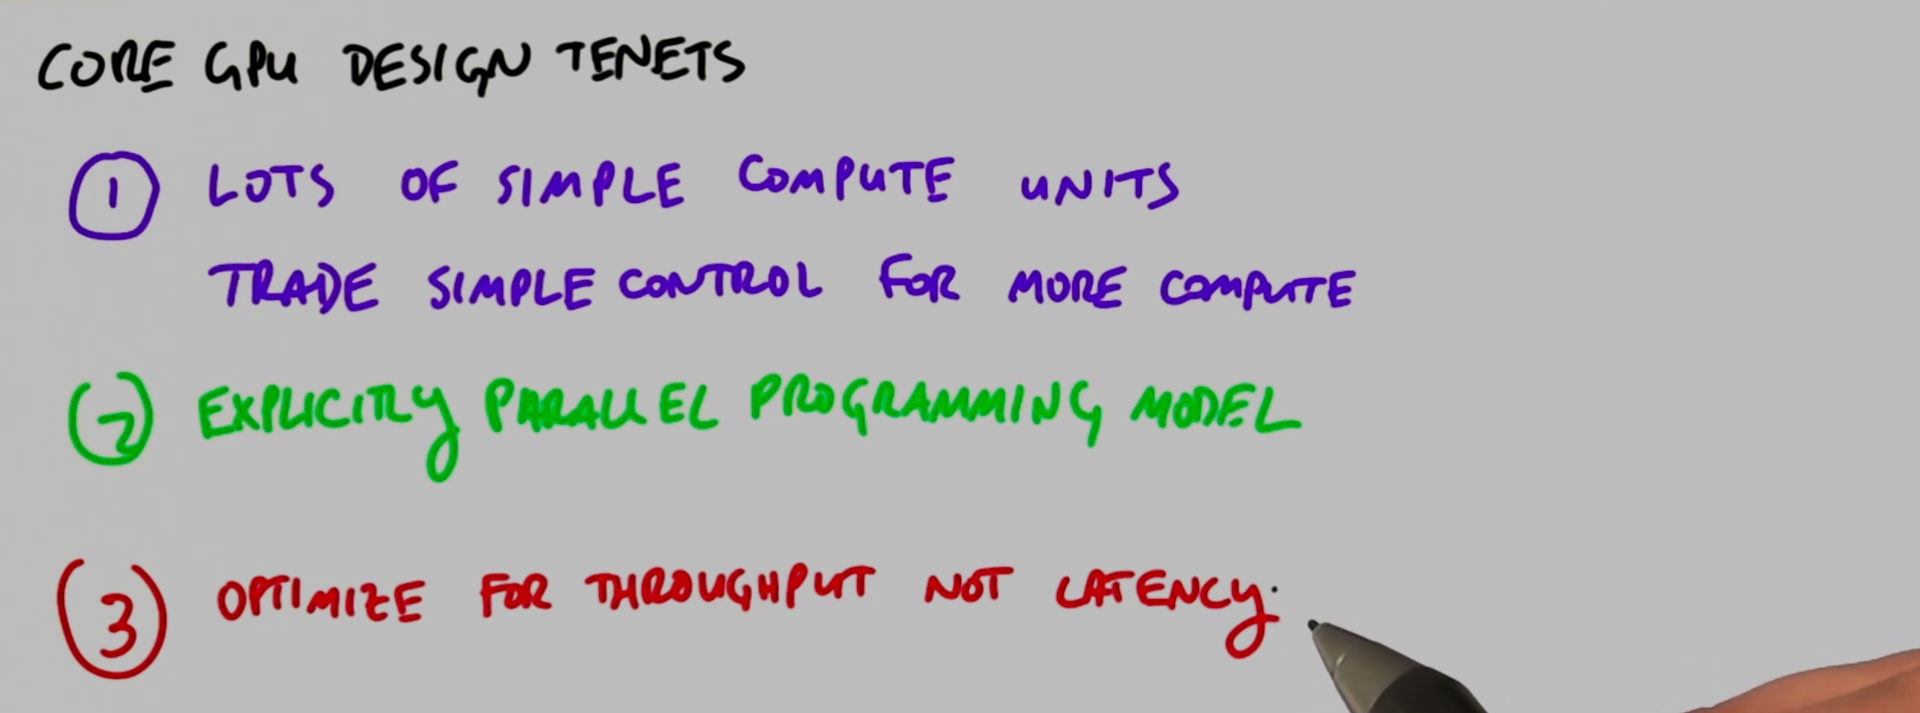 CORE GPU DESIGN TENETS
1 LOTS OF SIMPLE COMPUTE UNITS
TRADE SIMPLE CONTROL FOR MORE COMPUTE
2 EXPLICITLY PARALLEL PROGRAMMING MODEL
3 OPTIMIZE FOR THROUGHPUT NOT LATENCY